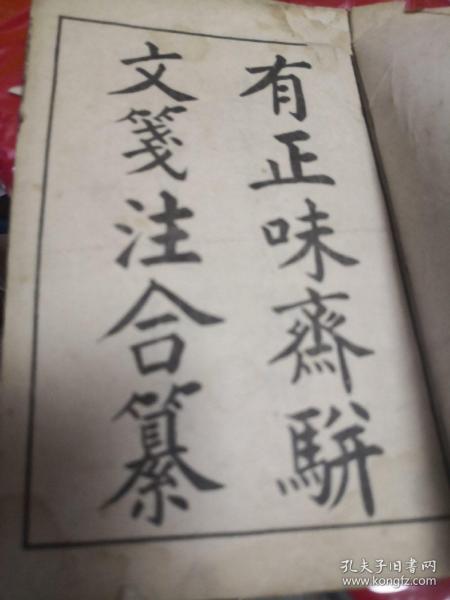 有正味齋駢
文箋注合纂
孔夫子旧书网
www.kongfz.com